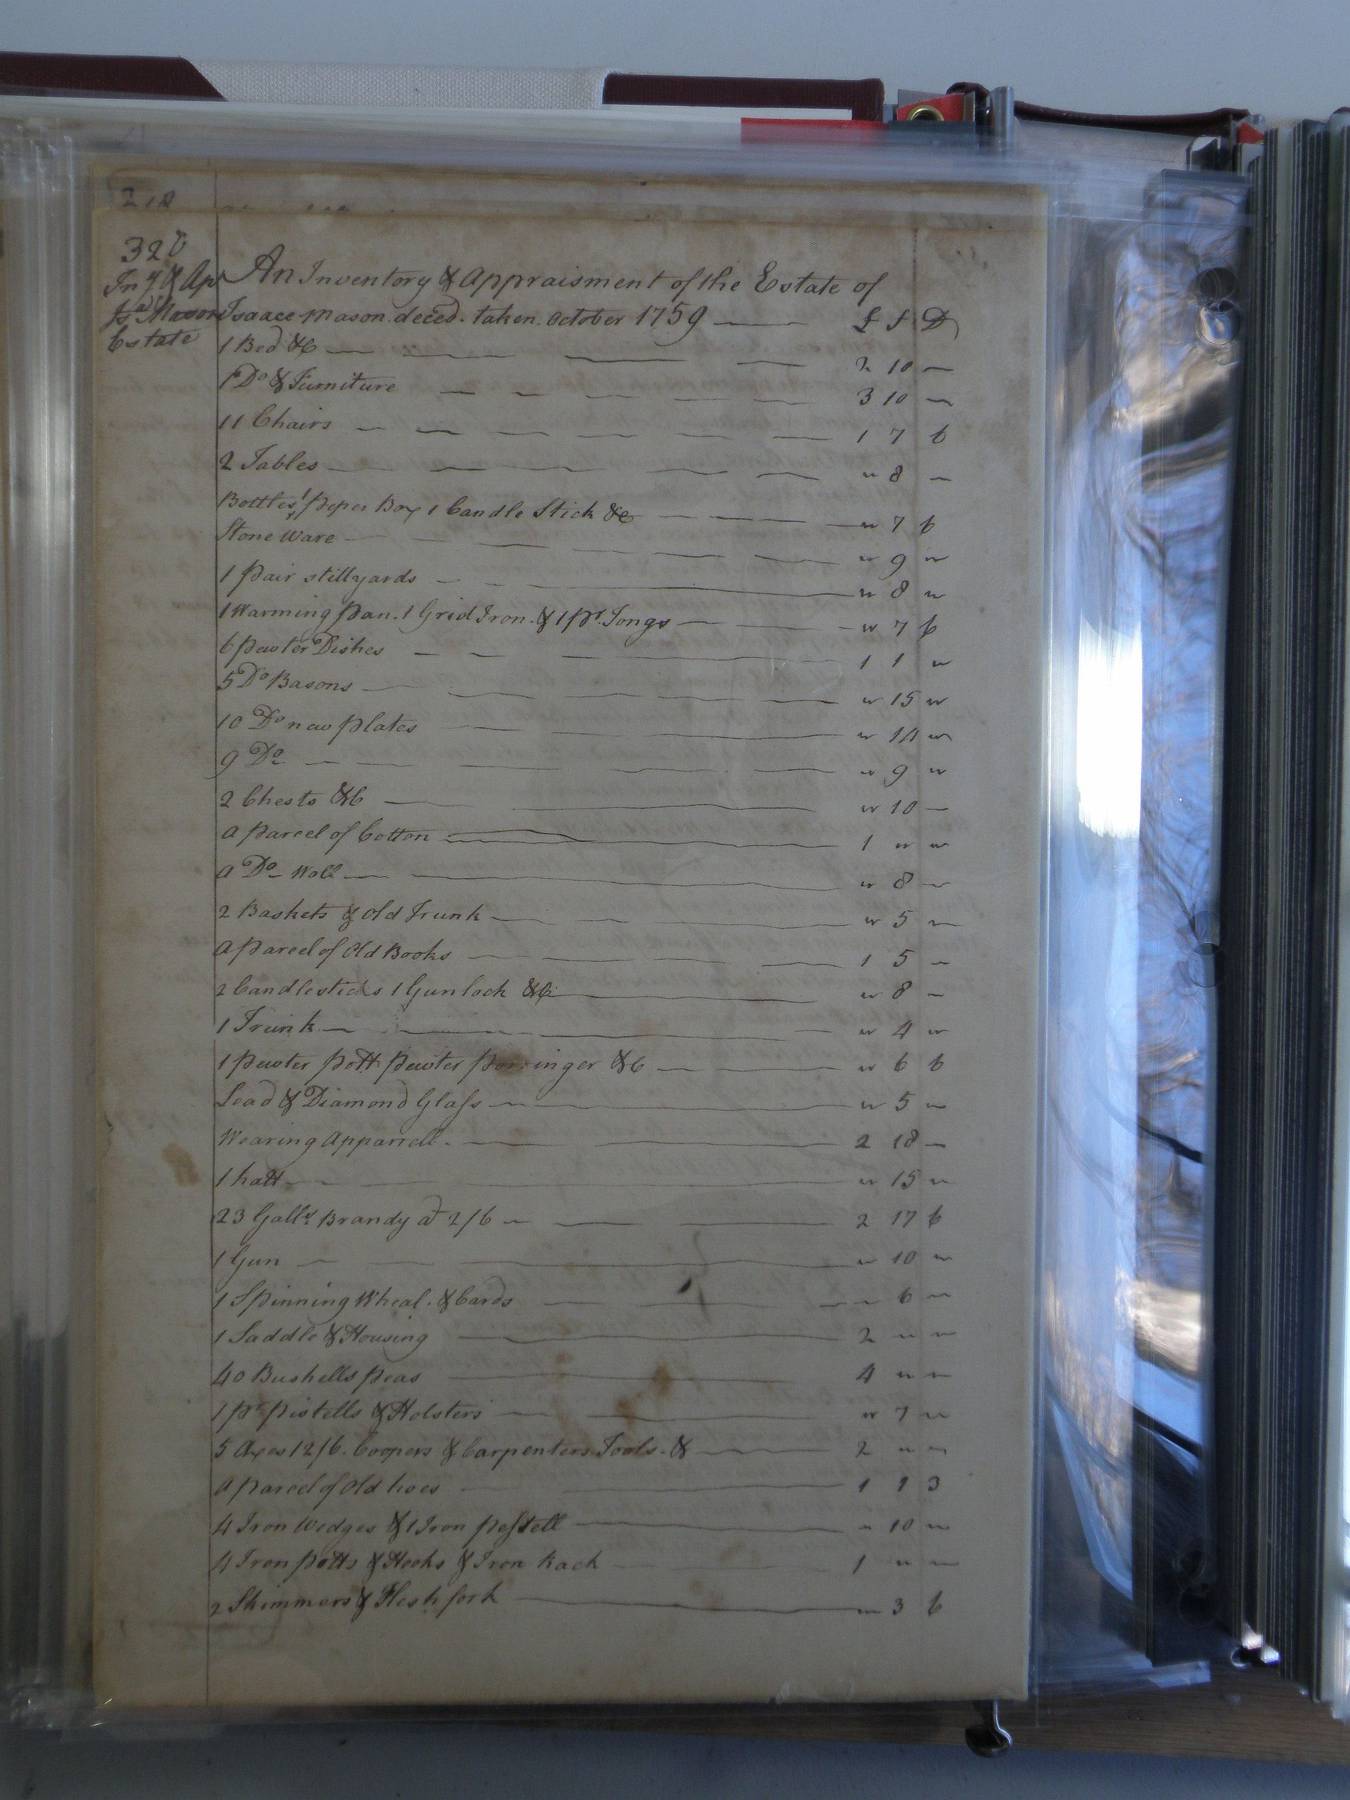 218
320
Inv.y & Ap
Is.a Mason
Estate
An Inventory & Appraisment of the Estate of
Isaace Mason deced. taken October 1759 £ s D
1 Bed &c 2 10 —
1 Do & Furniture 3 10 —
11 Chairs 1 7 6
2 Tables " 8 —
Bottles 1 peper Box 1 Candle Stick &c " 7 6
Stone Ware " 9 "
1 pair stillyards " 8 "
1 Warming pan. 1 Grid Iron. & 1 pr. Tongs " 7 6
6 pewter Dishes 1 1 "
5 Do Basons " 15 "
10 Do new plates " 14 "
9 Do " 9 "
2 Chests &c " 10 —
a parcel of Cotton 1 " "
a Do Woll " 8 —
2 Baskets & old Trunk " 5 —
a parcel of Old Books 1 5 —
2 Candlesticks 1 Gunlock &c " 8 —
1 Trunk " 4 "
1 pewter pott pewter porringer &c " 6 6
Lead & Diamond Glass " 5 "
Wearing Apparrell. 2 18 —
1 hatt " 15 "
23 Galls Brandy a 2/6 2 17 6
1 Gun " 10 "
1 Spinning Wheal. & Cards " 6 "
1 Saddle & Housing 2 " "
40 Bushells peas 4 " "
1 pr pistells & Holsters " 7 "
5 Axes 12/6. Coopers & Carpenters Tools. & 2 " "
a parcel of Old hoes 1 1 3
4 Iron Wedges & 1 Iron pestell " 10 "
4 Iron potts & Hooks & Iron Rack 1 " "
2 Skimmers & Flesh fork " 3 6